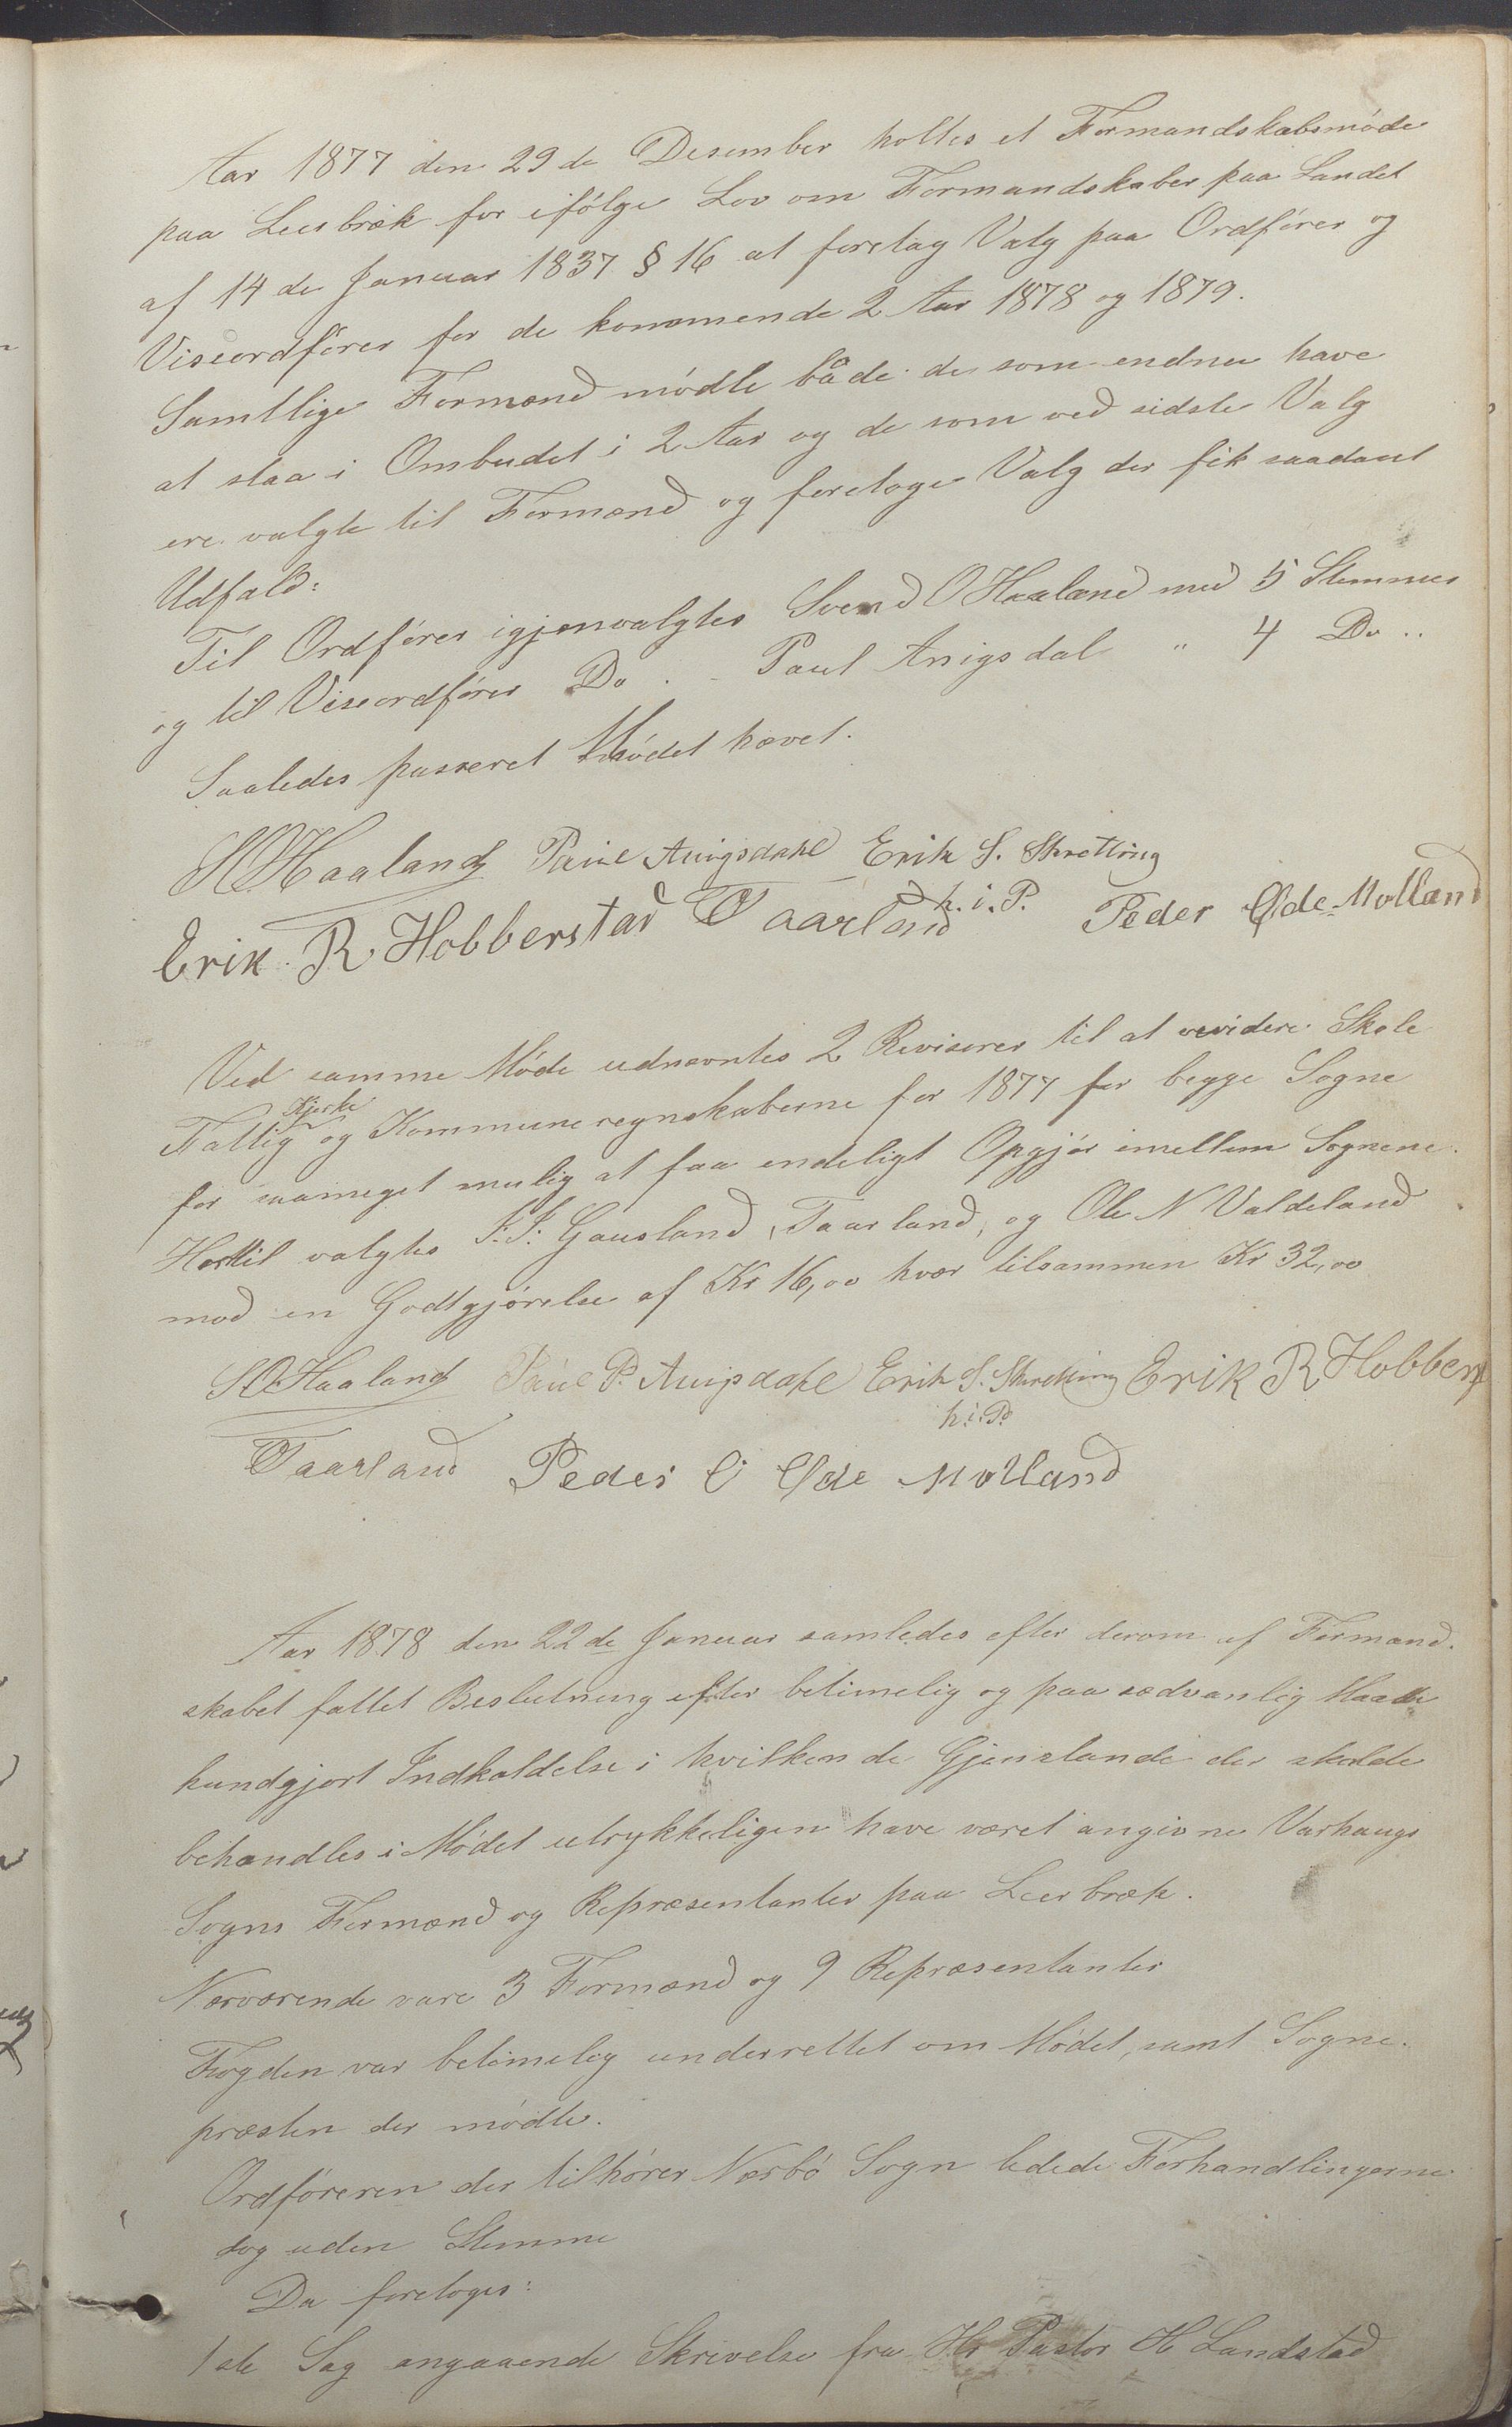 Aar 1877 den 29de Desember holtes et Formandskabsmöde
paa Leerbræk for ifölge Lov om Formandskaber paa Landet
af 14de Januar 1837 § 16 at foretag Valg paa Ordförer og
Viseordförer for de kommende 2 Aar 1878 og 1879.
Samtlige Formænd mödte både de som endnu have
at staa i Ombudet i 2 Aar og de som ved sidste Valg
ere valgte til Formænd og foretoge Valg der fik saadant
Udfald:
Til Ordförer igjenvalgtes Svend O Haaland med 5 Stemmer
og til Viseordförer Do . - Paul Anigsdal " 4 Do ..
Saaledes passeret Mödet hævet.
S O Haaland Paul Auigsdahl Erik S. Skretting
h. i. P.
Erik R Hobberstad O Taarland Peder O Øde Molland
Ved samme Möde udnævntes 2 Revisorer til at revidere Skole
Kjerke
Fattig og Kommuneregnskaberne for 1877 for begge Sogne
for saameget mulig at faa endeligt Opgjör imellem Sognene.
Hertil valgtes S. S. Gausland, Taarland, og Ole N Valdeland
mod en Godtgjörelse af Kr 16,00 hver tilsammen Kr 32,00
S O Haaland Paul P. Auigsdahl Erik S. Skretting Erik R Hobbers
h. i. P.
O Taarland Peder O Øde Molland
Aar 1878 den 22de Januar samledes efter derom af Formand-
skabet fattet Beslutning efter betimelig og paa sædvanlig Maade
kundgjort Indkaldelse i hvilken de Gjenstande der skulde
behandles i Mödet utrykkeligen have været angivne Varhaugs
Sogns Formænd og Repræsentanter paa Leerbræk.
Nærværende vare 3 Formænd og 9 Repræsentanter
Fogden var betimelig underrettet om Mödet, samt Sogne-
præsten der mödte.
Ordföreren der tilhörer Nærbö Sogn ledede Forhandlingerne
dog uden Stemme
Da foretoges:
1ste Sag angaaende Skrivelse fra Hr Pastor H Landstad